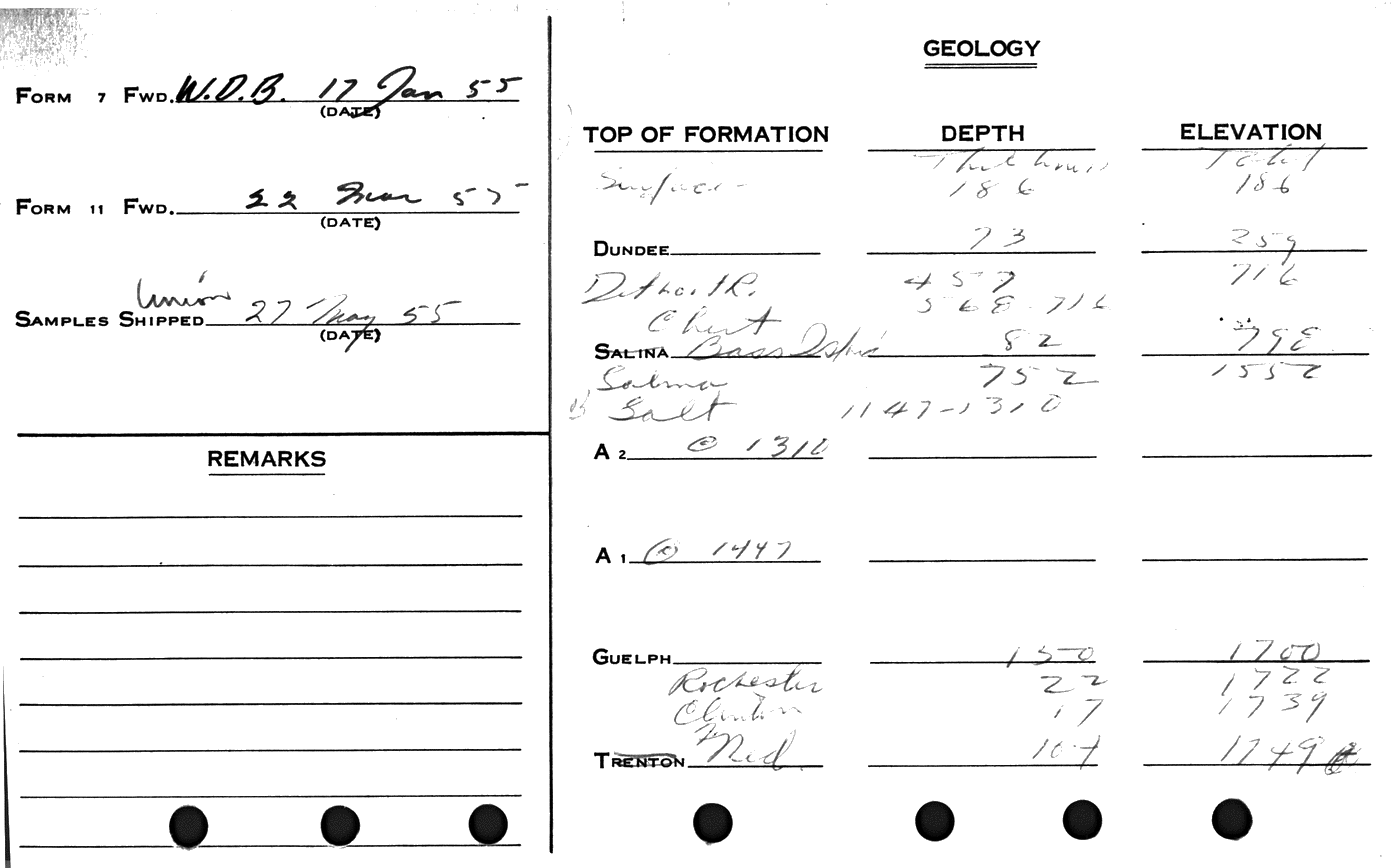 FORM 7 FWD. W.D.B. 17 Jan 55
(DATE)
FORM 11 FWD. 22 Mar 55
(DATE)
Union
SAMPLES SHIPPED 27 May 55
(DATE)
REMARKS
GEOLOGY
TOP OF FORMATION DEPTH ELEVATION
Thickness Total
Surface - 186 186
DUNDEE 73 259
Detroit R. 457 716
Chert 568-716
SALINA Bass Island 82 798
Salina 752 1552
Salt 1147-1310
A 2 @ 1310
A 1 @ 1447
GUELPH 150 1700
Rochester 22 1722
Clinton 17 1739
TRENTON Med. 10+ 1749